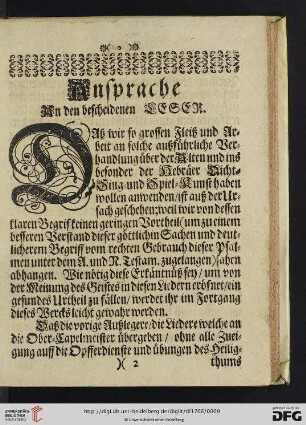 Ansprache
An den bescheidenen LESER.
DAß wir so grossen Fleiß und Ar-
beit an solche außführliche Ver-
handlung über der Alten und ins
besonder der Hebräer Dicht-
Sing- und Spiel-Kunst haben
wollen anwenden/ist auß der Ur-
sach geschehen; weil wir von dessen
klaren Begrif keinen geringen Vortheil (um zu einem
besseren Verstand dieser göttlichen Sachen und deut-
licherem Begriff vom rechten Gebrauch dieser Psal-
men unter dem A. und N. Testam. zugelangen) sahen
abhangen. Wie nötig diese Erkäntnüß sey/ um von
der Meinung des Geistes in diesen Liedern eröfnet/ein
gesundes Urtheil zu fällen/ werdet ihr im Fortgang
dieses Wercks leicht gewahr werden.
Daß die vorige Außlegere/die Liedere welche an
die Ober-Capelmeister übergeben/ ohne alle Zwei-
gung auff die Opfferdienste und übungen des Heilig-
)( 2 thums
http://digi.ub.uni-heidelberg.de/diglit/till1706/0009
© Universitätsbibliothek Heidelberg